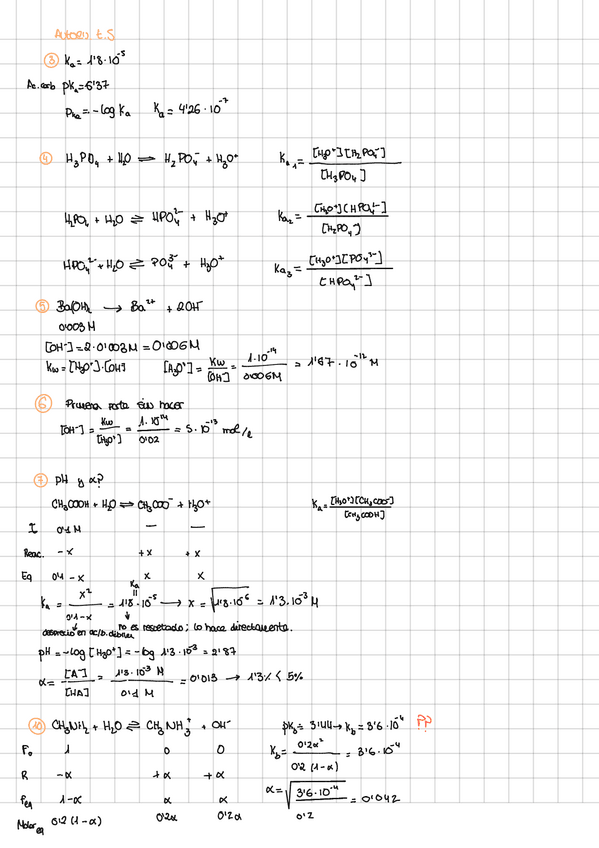 AUTOEV. t.5
③ Ka = 1'8·10⁻⁵
Ac. carb pKa = 6'37
pKa = -log Ka Ka = 4'26·10⁻⁷
④ H₃PO₄ + H₂O ⇌ H₂PO₄⁻ + H₃O⁺ Ka₁ = [H₃O⁺][H₂PO₄⁻] / [H₃PO₄]
H₂PO₄ + H₂O ⇌ HPO₄²⁻ + H₃O⁺ Ka₂ = [H₃O⁺][HPO₄²⁻] / [H₂PO₄⁻]
HPO₄²⁻ + H₂O ⇌ PO₄³⁻ + H₃O⁺ Ka₃ = [H₃O⁺][PO₄³⁻] / [HPO₄²⁻]
⑤ Ba(OH)₂ → Ba²⁺ + 2OH⁻
0'003 M
[OH⁻] = 2·0'003M = 0'006M
Kw = [H₃O⁺]·[OH⁻] [H₃O⁺] = Kw / [OH⁻] = 1·10⁻¹⁴ / 0'006M = 1'67·10⁻¹² M
⑥ Primera parte sin hacer
[OH⁻] = Kw / [H₃O⁺] = 1·10⁻¹⁴ / 0'02 = 5·10⁻¹³ mol/l
⑦ pH y α?
CH₃COOH + H₂O ⇌ CH₃COO⁻ + H₃O⁺ Ka = [H₃O⁺][CH₃COO⁻] / [CH₃COOH]
I 0'1 M — —
Reac. -x +x +x
Eq 0'1 - x x x
Ka = x² / 0'1-x = 1'8·10⁻⁵ → x = √1'8·10⁻⁶ = 1'3·10⁻³ M
Ka
desprecio en ac/b. débiles no es resetado; lo hace directamente.
pH = -log [H₃O⁺] = -log 1'3·10⁻³ = 2'87
α = [A⁻] / [HA] = 1'3·10⁻³ M / 0'1 M = 0'013 → 1'3% < 5%
⑩ CH₃NH₂ + H₂O ⇌ CH₃NH₃⁺ + OH⁻ pKb = 3'44 → Kb = 3'6·10⁻⁴ PP
F₀ 1 0 0 Kb = 0'2α² / 0'2 (1-α) = 3'6·10⁻⁴
R -α +α +α
Feq 1-α α α α = √3'6·10⁻⁴ / 0'2 = 0'042
Molar eq 0'2 (1-α) 0'2α 0'2α